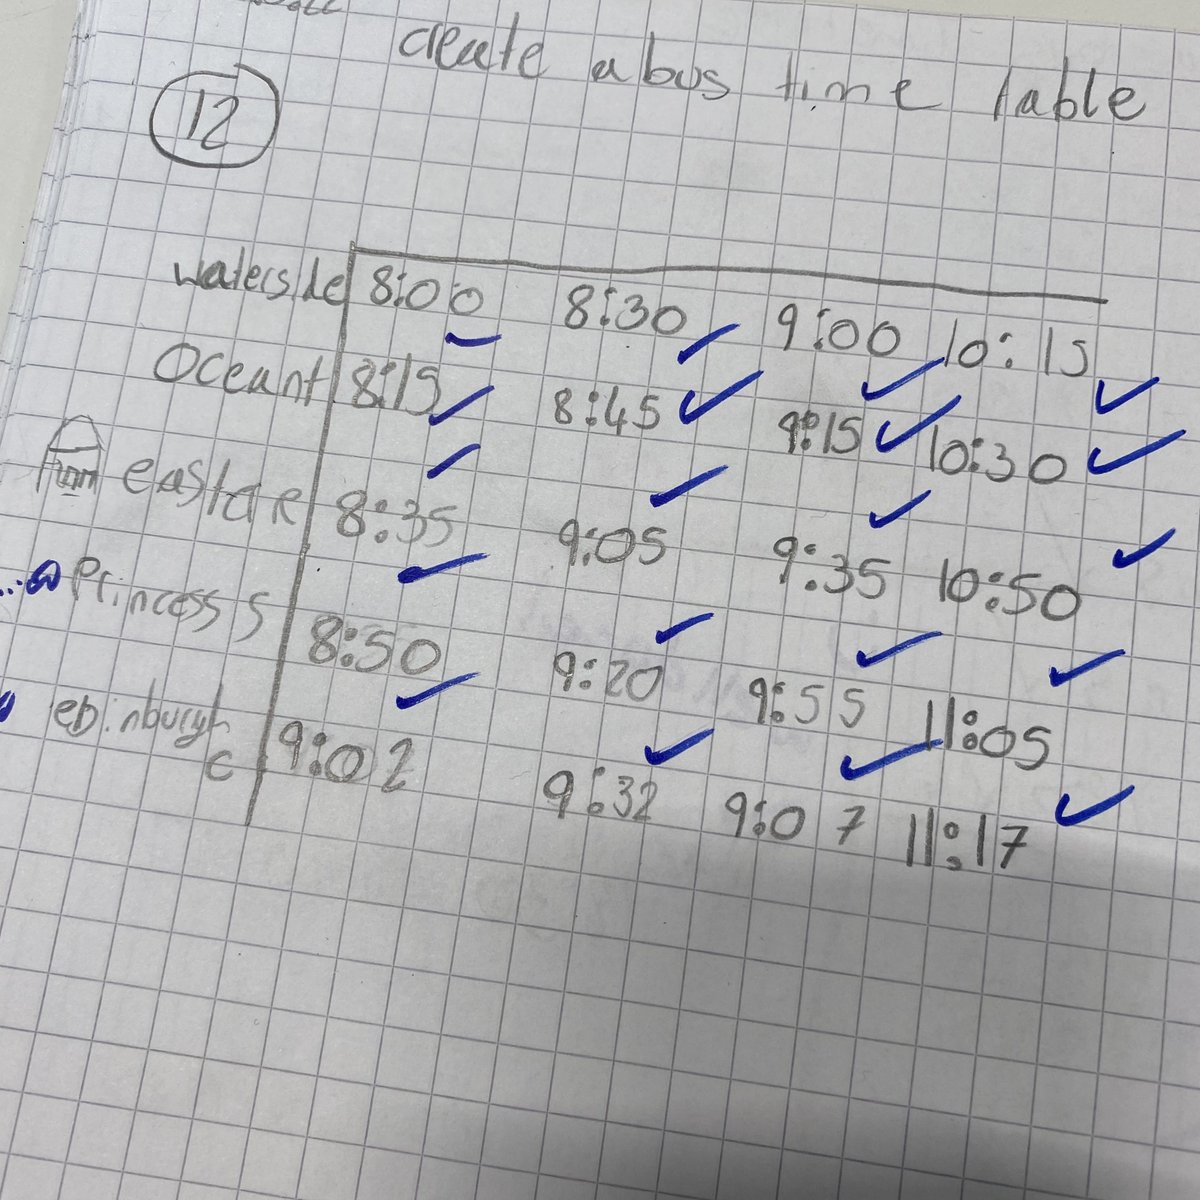 create a bus time table
12
waterside 8:00 8:30 9:00 10:15
Oceant 8:15 8:45 9:15 10:30
8:35 9:05 9:35 10:50
Princess S 8:50 9:20 9:55 11:05
eDinburgh 9:02 9:32 9:07 11:17
c